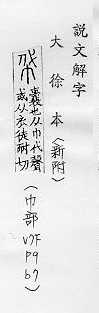 説文解字
大徐本〈新附〉
帒 囊也从巾代聲
或从衣徒耐切
(巾部 V7下 P9 b7)